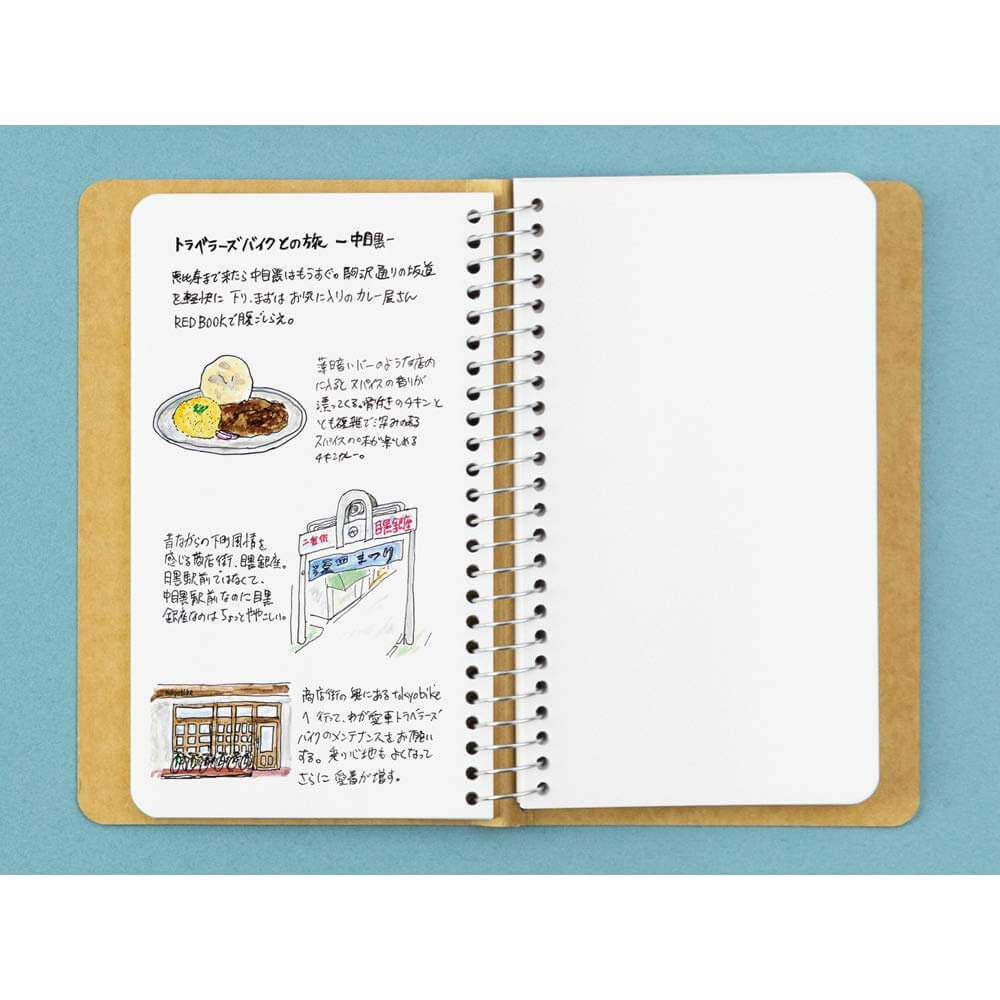 トラベラーズバイクとの旅 －中目黒－
恵比寿まで来たら中目黒はもうすぐ。駒沢通りの坂道
を軽快に下り、まずはお気に入りのカレー屋さん
RED BOOKで腹ごしらえ。
薄暗いバーのような店内
に入るとスパイスの香りが
漂ってくる。骨付きのチキンと
とも複雑で深みのある
スパイスの味が楽しめる
チキンカレー。
目黒銀座
二番街
まつり
昔ながらの下町風情を
感じる商店街、目黒銀座。
目黒駅前ではなくて、
中目黒駅前なのに目黒
銀座なのはちょっとややこしい。
tokyobike
商店街の奥にあるtokyobike
へ行って、わが愛車トラベラーズ
バイクのメンテナンスをお願い
する。乗り心地もよくなって
さらに愛着が増す。